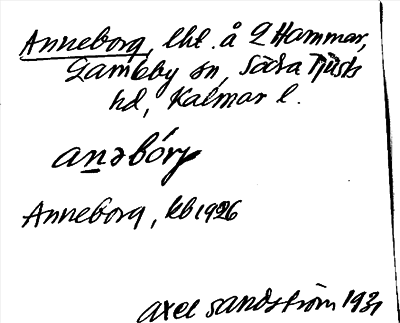 Anneborg, lht. å L Hammar,
Gamleby sn, Södra Tjusts
hd, Kalmar l.
anəbórj
Anneborg, kb 1926
Axel Sandström 1931